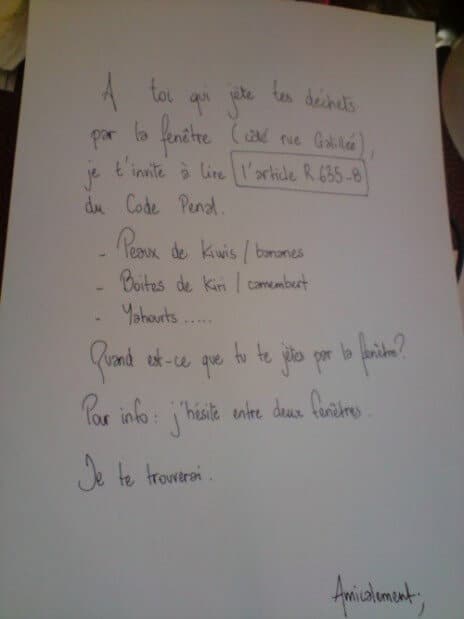 A toi qui jète tes déchets
par la fenêtre (côté rue Galillée),
je t'invite à lire l'article R.635-8
du Code Penal.
- Peaux de Kiwis / bananes
- Boites de Kiri / camembert
- Yahourts .....
Quand est-ce que tu te jètes par la fenêtre?
Pour info: j'hésite entre deux fenêtres.
Je te trouverai.
Amicalement,